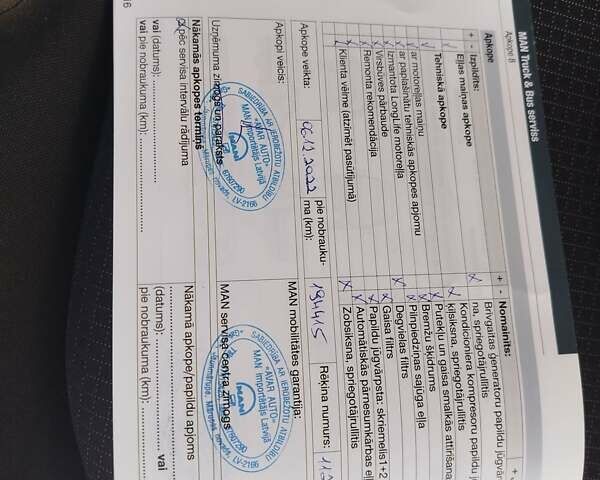 MAN Truck & Bus serviss
Apkope 8
Apkope
+ - Izpildīts:
Eļļas maiņas apkope
Tehniskā apkope
ar motoreļļas maiņu
ar paplašinātu tehniskās apkopes apjomu
Izmantota LongLife motoreļļa
Virsbūves pārbaude
Remonta rekomendācija
Klienta vēlme (atzīmēt pasūtījumā)
+ - Nomainīts:
Brīvgaitas ģeneratoru papildu jūgvār
na, spriegotājrullītis
Kondicioniera kompresoru papildu j
ķīlsiksna, spriegotājrullītis
Putekļu un gaisa smakas attīrīšana
Bremžu šķidrums
Pilnpiedziņas sajūga eļļa
Degvielas filtrs
Gaisa filtrs
Papildu jūgvārpsta: skriemelis 1+2
Automātiskās pārnesumkārbas eļ
Zobsiksna, spriegotājrullītis
Apkope veikta: 06.12.2022 pie nobrauku-
ma (km): 194415 Rēķina numurs:
Apkopi veicis:
MAN mobilitātes garantija:
SABIEDRĪBA AR IEROBEŽOTU ATBILDĪBU
"AVAR AUTO"
MAN Importētājs Latvijā
67607290
LV-2166
Uzņēmuma zīmogs un paraksts
SABIEDRĪBA AR IEROBEŽOTU ATBILDĪBU
"AVAR AUTO"
MAN Importētājs Latvijā
67607290
LV-2166
MAN servisa centra zīmogs
Nākamās apkopes termiņš
pēc servisa intervālu rādījuma
vai (datums):
vai pie nobraukuma (km):
Nākamā apkope/papildu apjoms
(datums): vai
pie nobraukuma (km):
16